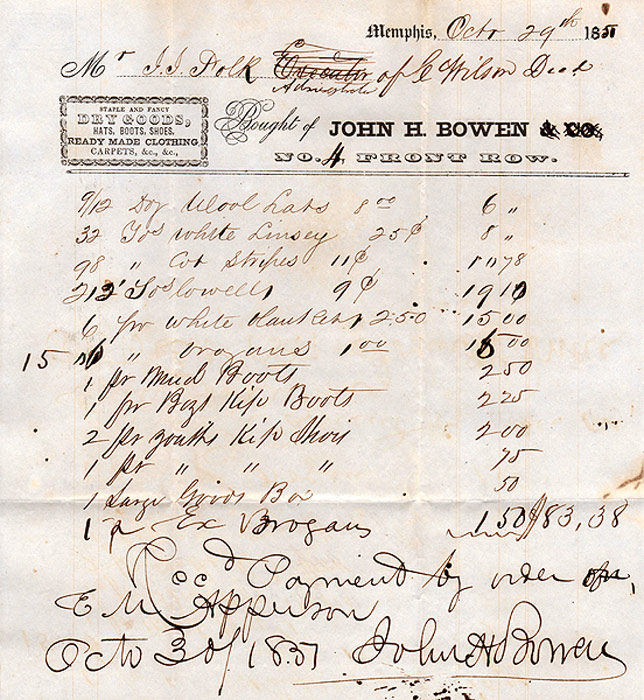 Memphis, Octr 29th 1851
Mr J. J. Polk Executor of G Wilson Decd
Administrator
STAPLE AND FANCY
DRY GOODS,
HATS, BOOTS, SHOES,
READY MADE CLOTHING,
CARPETS, &c., &c.,
Bought of JOHN H. BOWEN & CO.
NO. 4 FRONT ROW.
9/12 Doz Wool Hats 8 00 6 "
32 Yds white Linsey 25¢ 8 "
98 " Cot Stripes 11¢ 10 78
212 Yds Lowells 9¢ 19 10
6 pr White Blankets 2.50 15 00
15 " Brogans 1 00 15 00
1 pr Mud Boots 2 50
1 pr Boys Kip Boots 2 25
2 pr youths Kip Shois 2 00
1 pr " " " 75
1 Large Goods Box 50
1 pr Ex Brogans 1 50 $83,38
Recd Payment by order on
E M Apperson
Octo 30/ 1851 John H Bowen